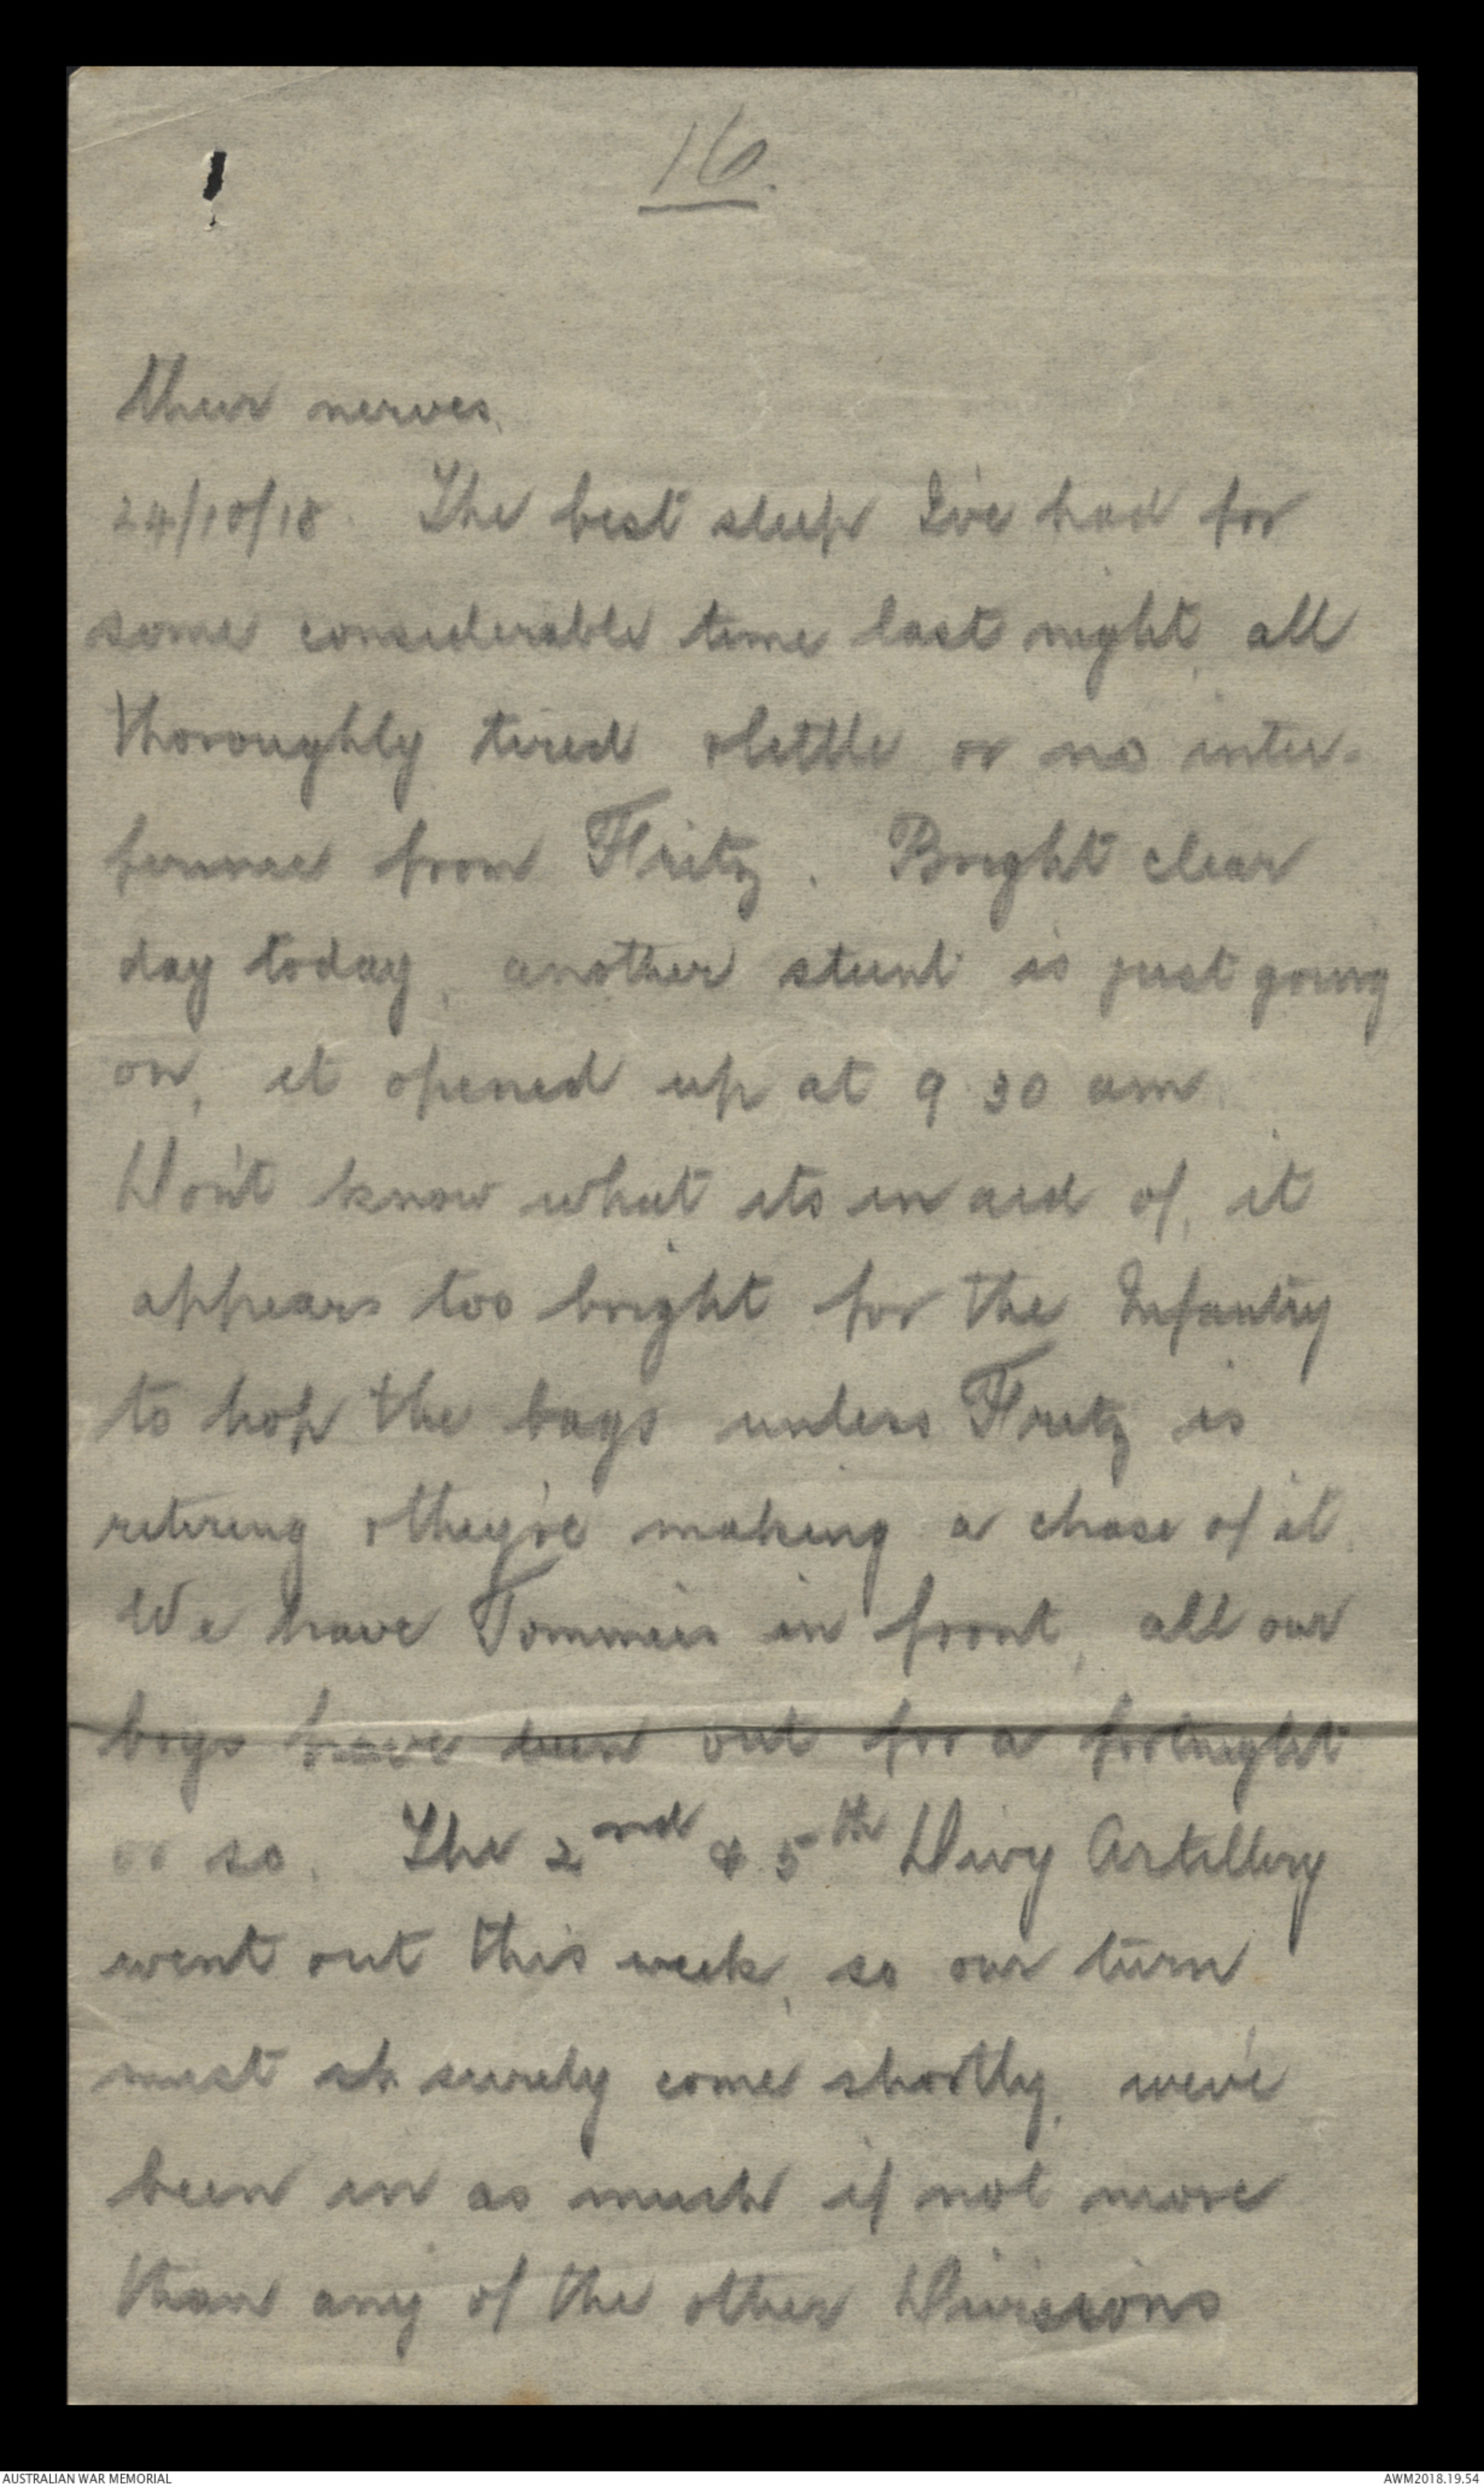 16.
their nerves.
24/10/18. The best sleep I've had for
some considerable time last night, all
thoroughly tired & little or no inter-
ference from Fritz. Bright clear
day today, another stunt is just going
on, it opened up at 9 30 am.
Don't know what its in aid of, it
appears too bright for the Infantry
to hop the bags unless Fritz is
retiring & they're making a chase of it.
We have Tommies in front, all our
boys have been out for a fortnight
or so. The 2nd & 5th Divvy Artillery
went out this week, so our turn
must sh surely come shortly, we've
been in as much if not more
than any of the other Divisions
AUSTRALIAN WAR MEMORIAL
AWM2018.19.54